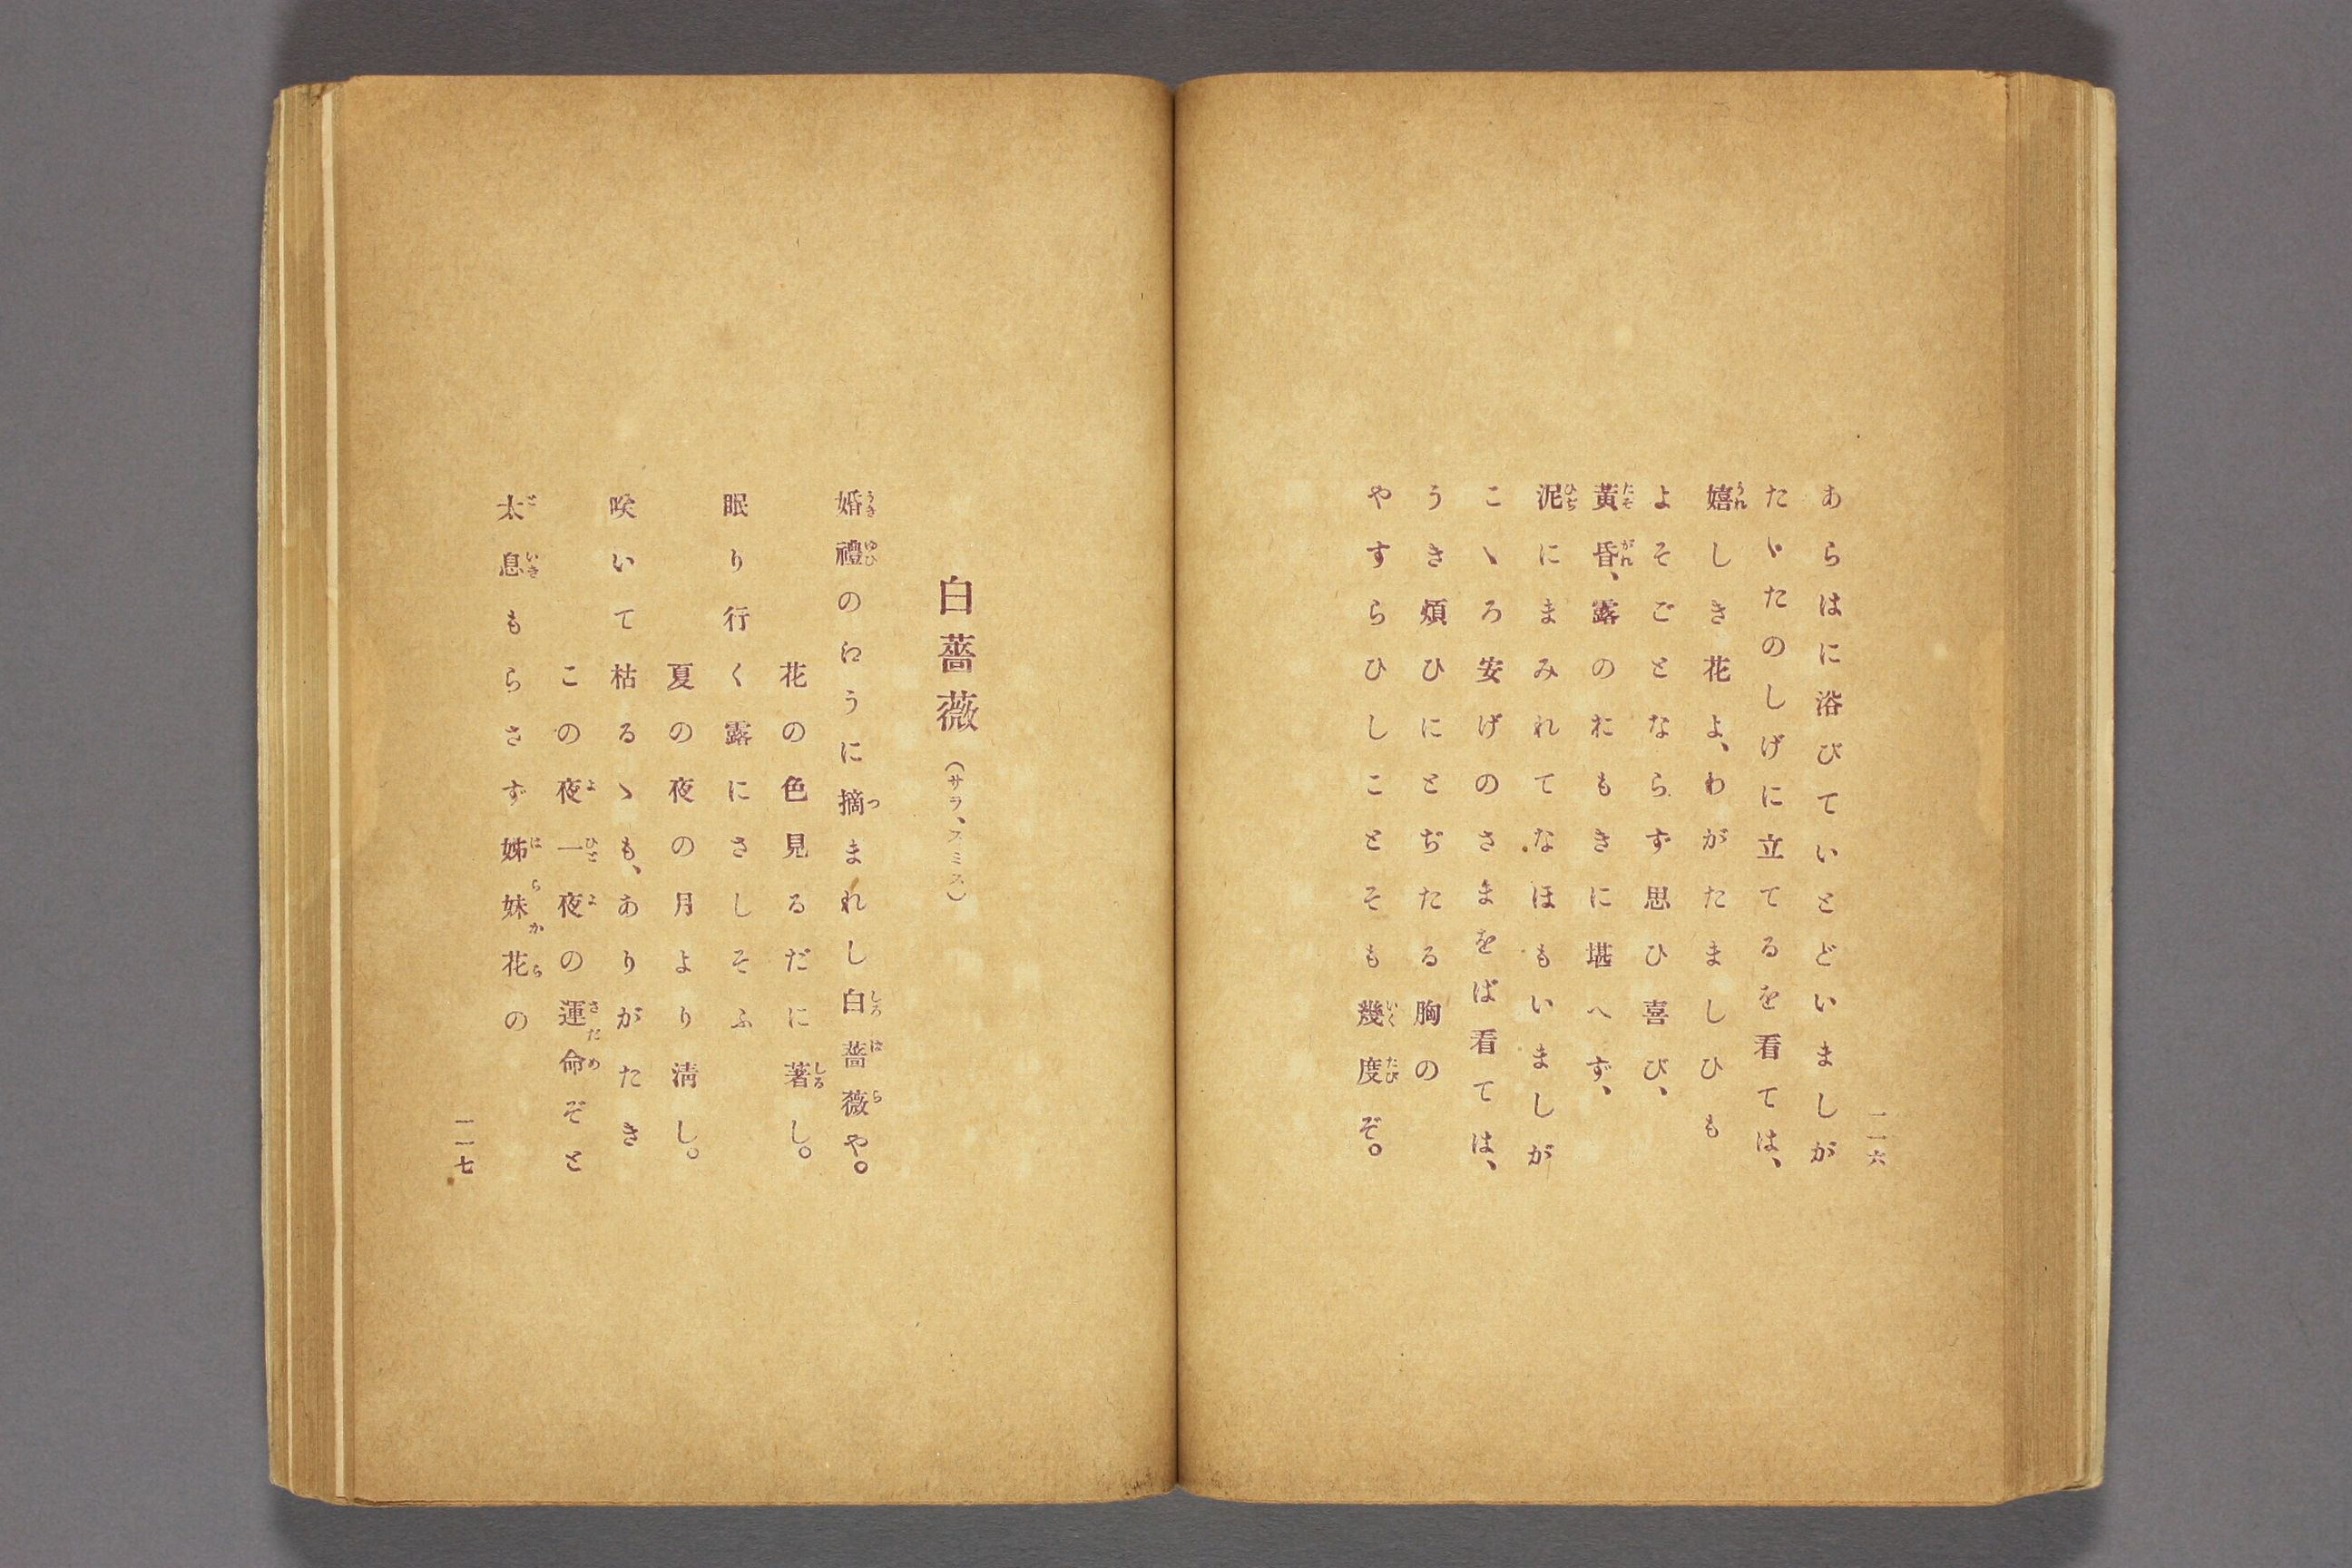 一一六
あらはに浴びていとどいましが
たゞたのしげに立てるを看ては、
嬉しき花よ、わがたましひも
よそごとならず思ひ喜び、
黃昏、露のおもきに堪へず、
泥にまみれてなほもいましが
こゝろ安げのさまをば看ては、
うき煩ひにとぢたる胸の
やすらひしことそも幾度ぞ。
白薔薇(サラ、スミス)
婚禮のねうに摘まれし白薔薇や。
花の色見るだに著し。
眠り行く露にさしそふ
夏の夜の月より淸し。
咲いて枯るゝも、ありがたき
この夜一夜の運命ぞと
太息もらさず姊妹花の
一一七